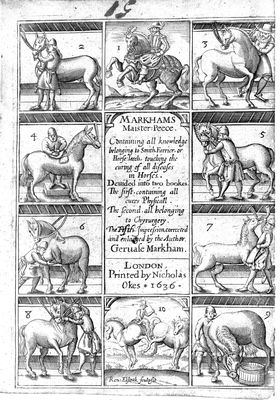 51
2
1
3
4
5
6
7
8
9
10
MARKHAMS
Maister-Peece.
Containing all knowledge
belonging to Smith, Farrier, or
Horse-leech, touching the
curing of all diseases
in Horses.
Deuided into two bookes.
The first, containing all
cures Physicall.
The second, all belonging
to Chyrurgery.
The Fifth Impression, corrected
and enlarged by the Author.
Geruase Markham.
LONDON.
Printed by Nicholas
Okes • 1636 •
Ren: Elstrak sculpsit